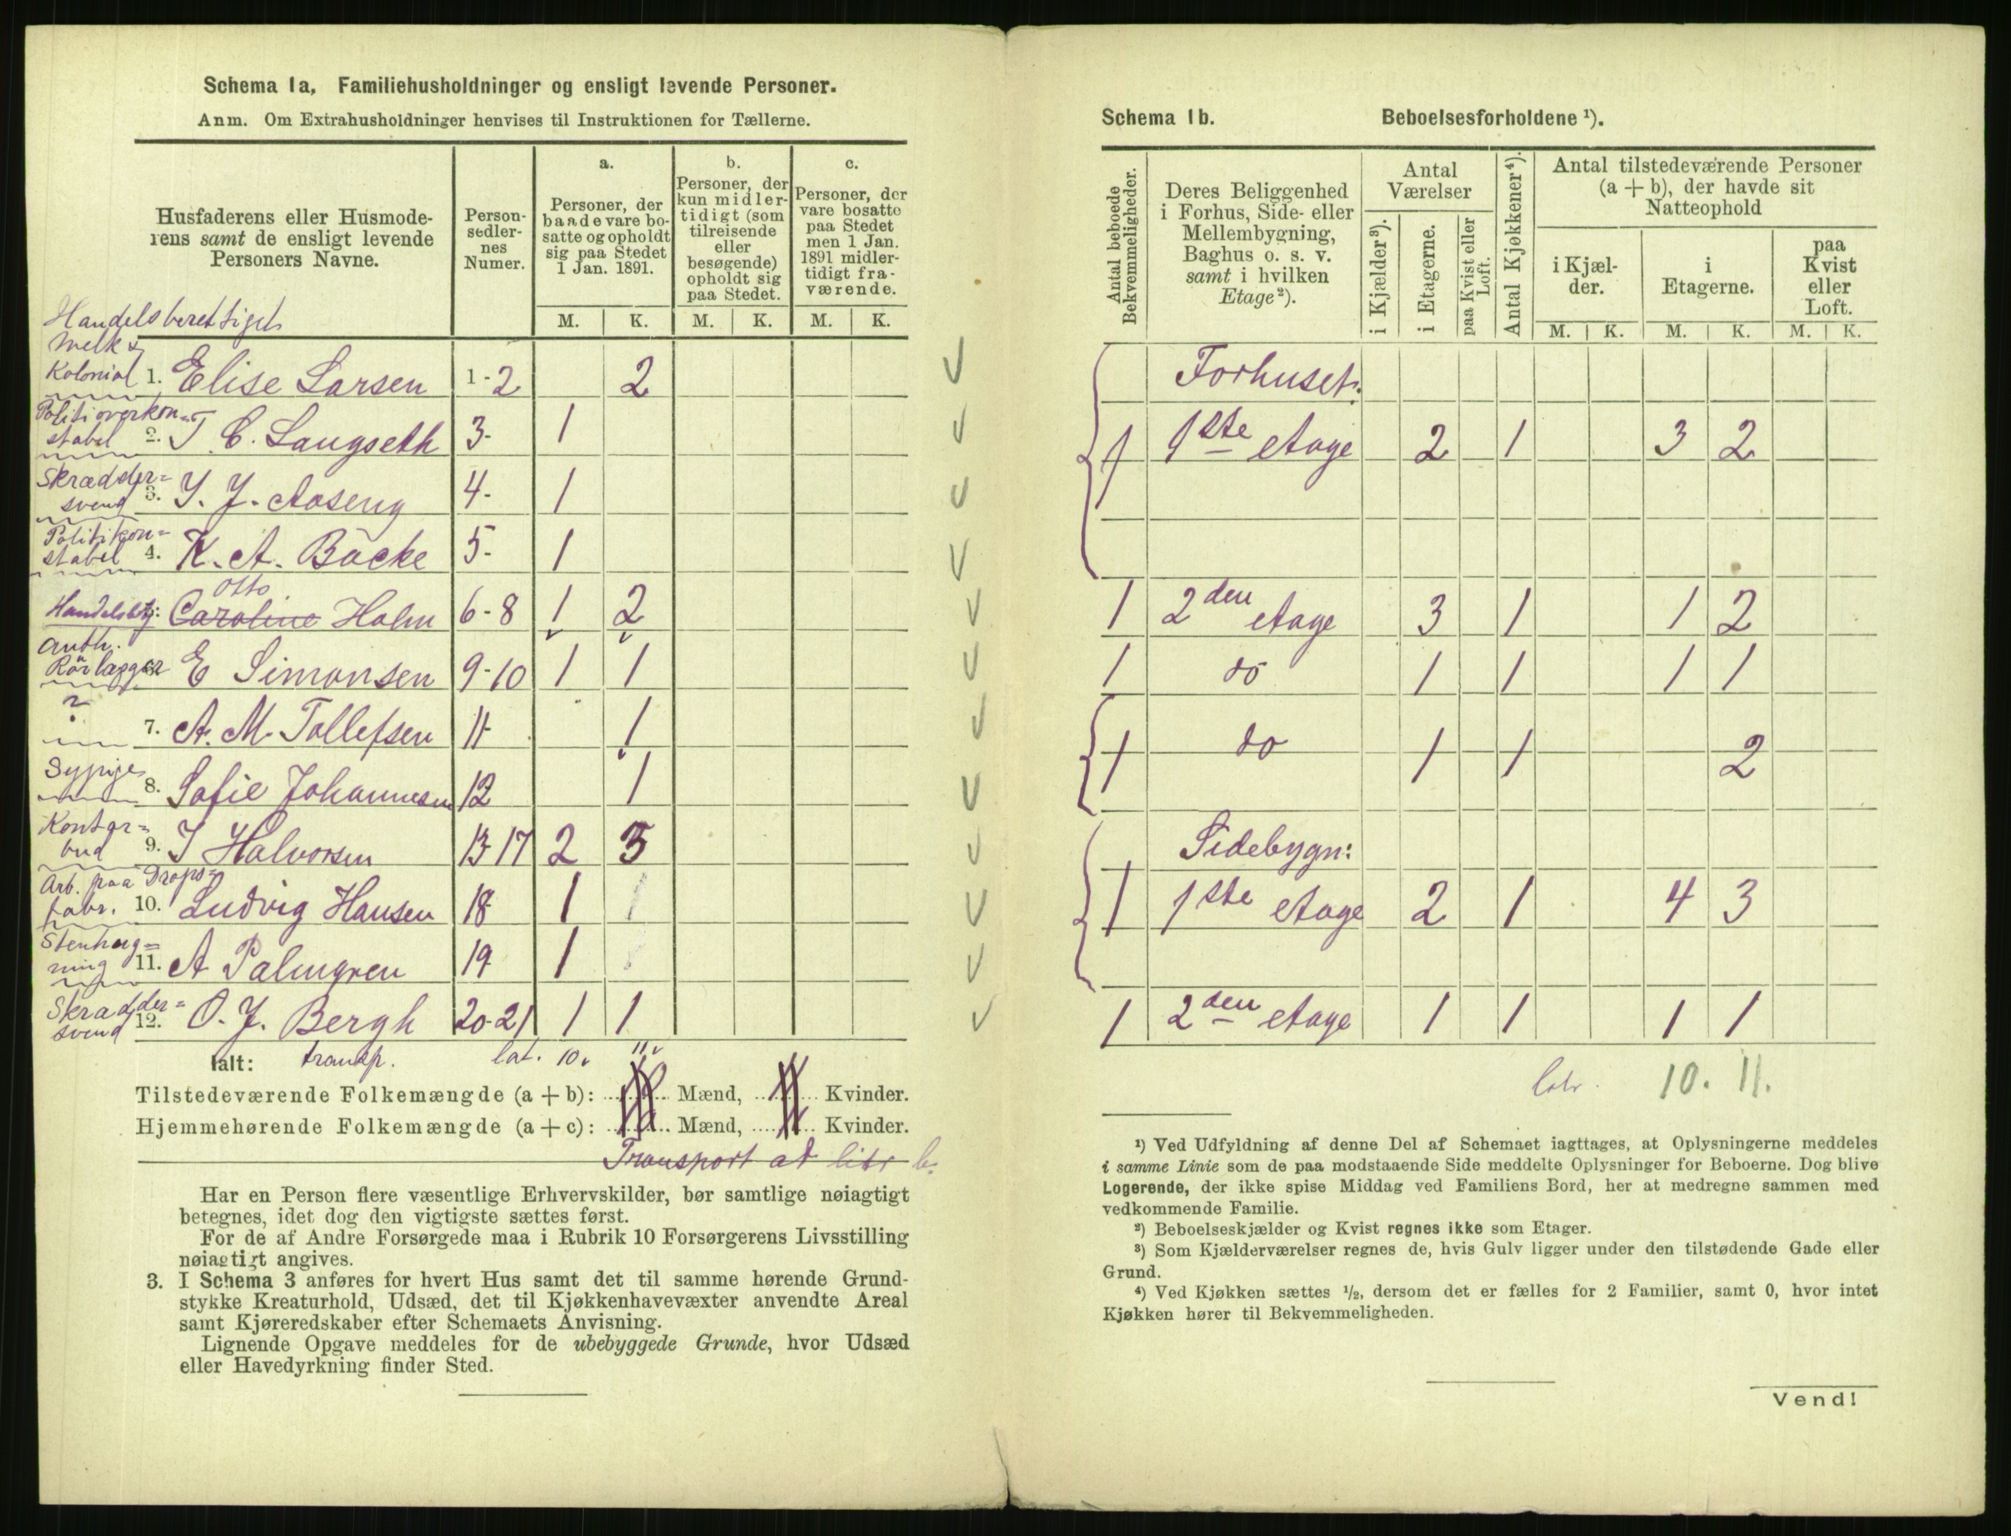 Schema 1a. Familiehusholdninger og ensligt levende Personer.
Anm. Om Extrahusholdninger henvises til Instruktionen for Tællerne.
Husfaderens eller Husmode-
rens samt de ensligt levende
Personers Navne.
Person-
sedler-
nes
Numer.
a.
Personer, der
baade vare bo-
satte og opholdt
sig paa Stedet
1 Jan. 1891.
b.
Personer, der
kun midler-
tidigt (som
tilreisende
eller
besøgende)
opholdt sig
paa Stedet.
c.
Personer, der
vare bosatte
paa Stedet
men 1 Jan.
1891 midler-
tidigt fra-
værende.
M. K. M. K. M. K.
Handelsberettiget
Melk &
Kolonial 1. Elise Larsen 1-2 2
Politioverkon=
stabel 2. T. C. Langseth 3- 1
Skrædder=
svend 3. I. J. Aaseng 4- 1
Politikon=
stabel 4. K. A. Backe 5- 1
Otto
Handelsbtj: Caroline Holm 6-8 1 2
Auth.
Rörlægger E Simonsen 9-10 1 1
? 7. A. M. Tollefsen 11 1
Sypige 8. Sofie Johannesen 12 1
Kontor=
bud 9. I Halvorsen 13-17 2 3
Arb. paa Drops=
fabr. 10. Ludvig Hansen 18 1
Stenhug=
ning 11. A Palmgren 19 1
Skrædder=
svend 12. O. J. Bergh 20-21 1 1
Ialt: transp. lat. 10. 11.
Tilstedeværende Folkemængde (a + b): Mænd, Kvinder.
Hjemmehørende Folkemængde (a + c): Mænd, Kvinder.
Transport ad litr b.
Har en Person flere væsentlige Erhvervskilder, bør samtlige nøiagtigt
betegnes, idet dog den vigtigste sættes først.
For de af Andre Forsørgede maa i Rubrik 10 Forsørgerens Livsstilling
nøiagtigt angives.
3. I Schema 3 anføres for hvert Hus samt det til samme hørende Grund-
stykke Kreaturhold, Udsæd, det til Kjøkkenhavevæxter anvendte Areal
samt Kjøreredskaber efter Schemaets Anvisning.
Lignende Opgave meddeles for de ubebyggede Grunde, hvor Udsæd
eller Havedyrkning finder Sted.
Schema 1b. Beboelsesforholdene ¹).
Antal beboede
Bekvemmeligheder.
Deres Beliggenhed
i Forhus, Side- eller
Mellembygning,
Baghus o. s. v.
samt i hvilken
Etage ²).
Antal
Værelser
i Kjælder ³).
i Etagerne.
paa Kvist eller
Loft.
Antal Kjøkkener ⁴).
Antal tilstedeværende Personer
(a + b), der havde sit
Natteophold
i Kjæl-
der.
i
Etagerne.
paa
Kvist
eller
Loft.
M. K. M. K. M. K.
Forhuset.
1 1ste etage 2 1 3 2
1 2den etage 3 1 1 2
1 do 1 1 1 1
1 do 1 1 2
Sidebygn:
1 1ste etage 2 1 4 3
1 2den etage 1 1 1 1
10. 11.
¹) Ved Udfyldning af denne Del af Schemaet iagttages, at Oplysningerne meddeles
i samme Linie som de paa modstaaende Side meddelte Oplysninger for Beboerne. Dog blive
Logerende, der ikke spise Middag ved Familiens Bord, her at medregne sammen med
vedkommende Familie.
²) Beboelseskjælder og Kvist regnes ikke som Etager.
³) Som Kjælderværelser regnes de, hvis Gulv ligger under den tilstødende Gade eller
Grund.
⁴) Ved Kjøkken sættes ½, dersom det er fælles for 2 Familier, samt 0, hvor intet
Kjøkken hører til Bekvemmeligheden.
Vend!